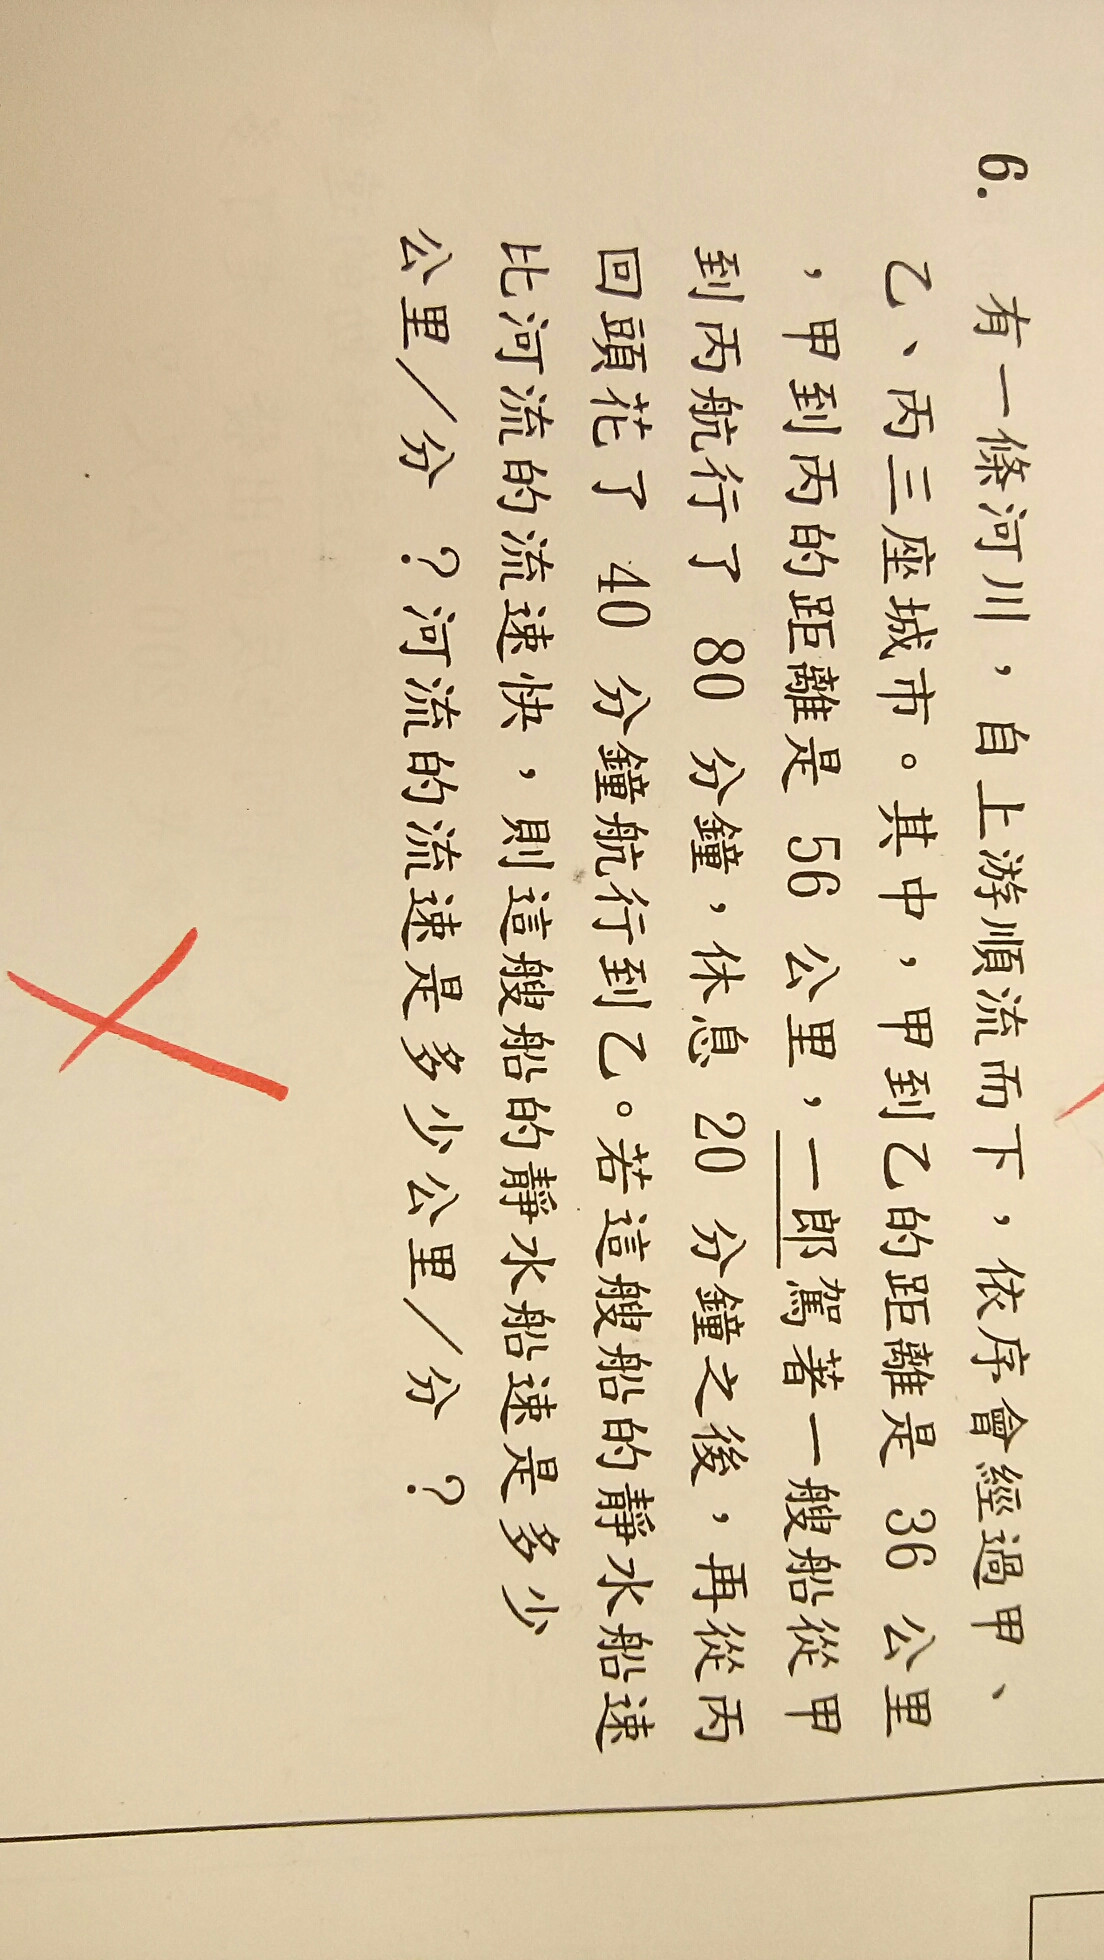 6. 有一條河川，自上游順流而下，依序會經過甲、
乙、丙三座城市。其中，甲到乙的距離是 36 公里
，甲到丙的距離是 56 公里，一郎駕著一艘船從甲
到丙航行了 80 分鐘，休息 20 分鐘之後，再從丙
回頭花了 40 分鐘航行到乙。若這艘船的靜水船速
比河流的流速快，則這艘船的靜水船速是多少
公里／分 ？河流的流速是多少公里／分 ？